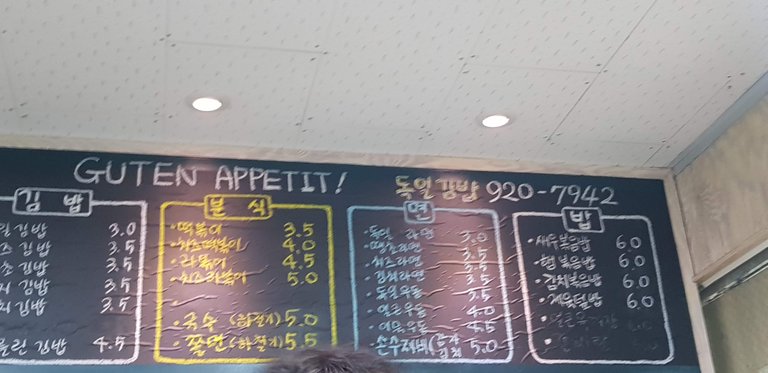 GUTEN APPETIT! 독일김밥 920-7942
김 밥
김밥 3.0
김밥 3.5
김밥 3.5
김밥 3.5
김밥 3.5
김밥 4.5
분 식
·떡볶이 3.5
·치즈떡볶이 4.0
·라볶이 4.5
·치즈라볶이 5.0
·국수 (하절기) 5.0
·쫄면 (하절기) 5.5
면
라면 3.0
·떡라면 3.5
·치즈라면 3.5
·김치라면 3.5
우동 3.5
우동 4.0
우동 4.5
·손수제비 5.0
밥
·새우볶음밥 6.0
·햄볶음밥 6.0
·김치볶음밥 6.0
·제육덮밥 6.0